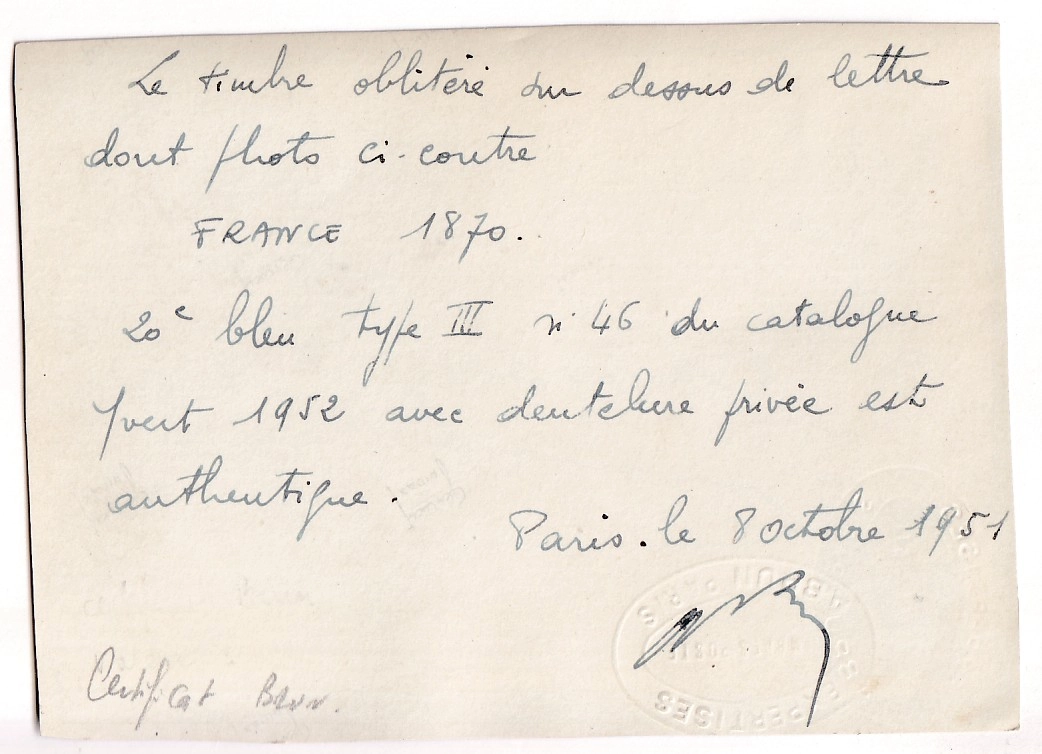 Le timbre oblitéré sur dessus de lettre
dont photo ci-contre
FRANCE 1870.
20c bleu type III n° 46 du catalogue
Yvert 1952 avec dentelure privée est
authentique.
Paris. le 8 octobre 1951
A. BRUN PARIS
EXPERTISES
Certificat Brun.